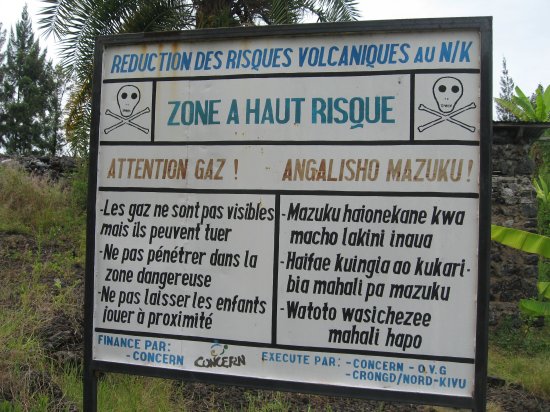 REDUCTION DES RISQUES VOLCANIQUES AU N/K
ZONE A HAUT RISQUE
ATTENTION GAZ !
ANGALISHO MAZUKU !
- Les gaz ne sont pas visibles
mais ils peuvent tuer
- Ne pas pénétrer dans la
zone dangereuse
- Ne pas laisser les enfants
jouer à proximité
- Mazuku haionekane kwa
macho lakini inaua
- Haifae kuingia ao kukari-
bia mahali pa mazuku
- Watoto wasichezee
mahali hapo
FINANCE PAR :
- CONCERN
CONCERN
EXECUTE PAR : - CONCERN - O.V.G
- CRONGD/NORD-KIVU